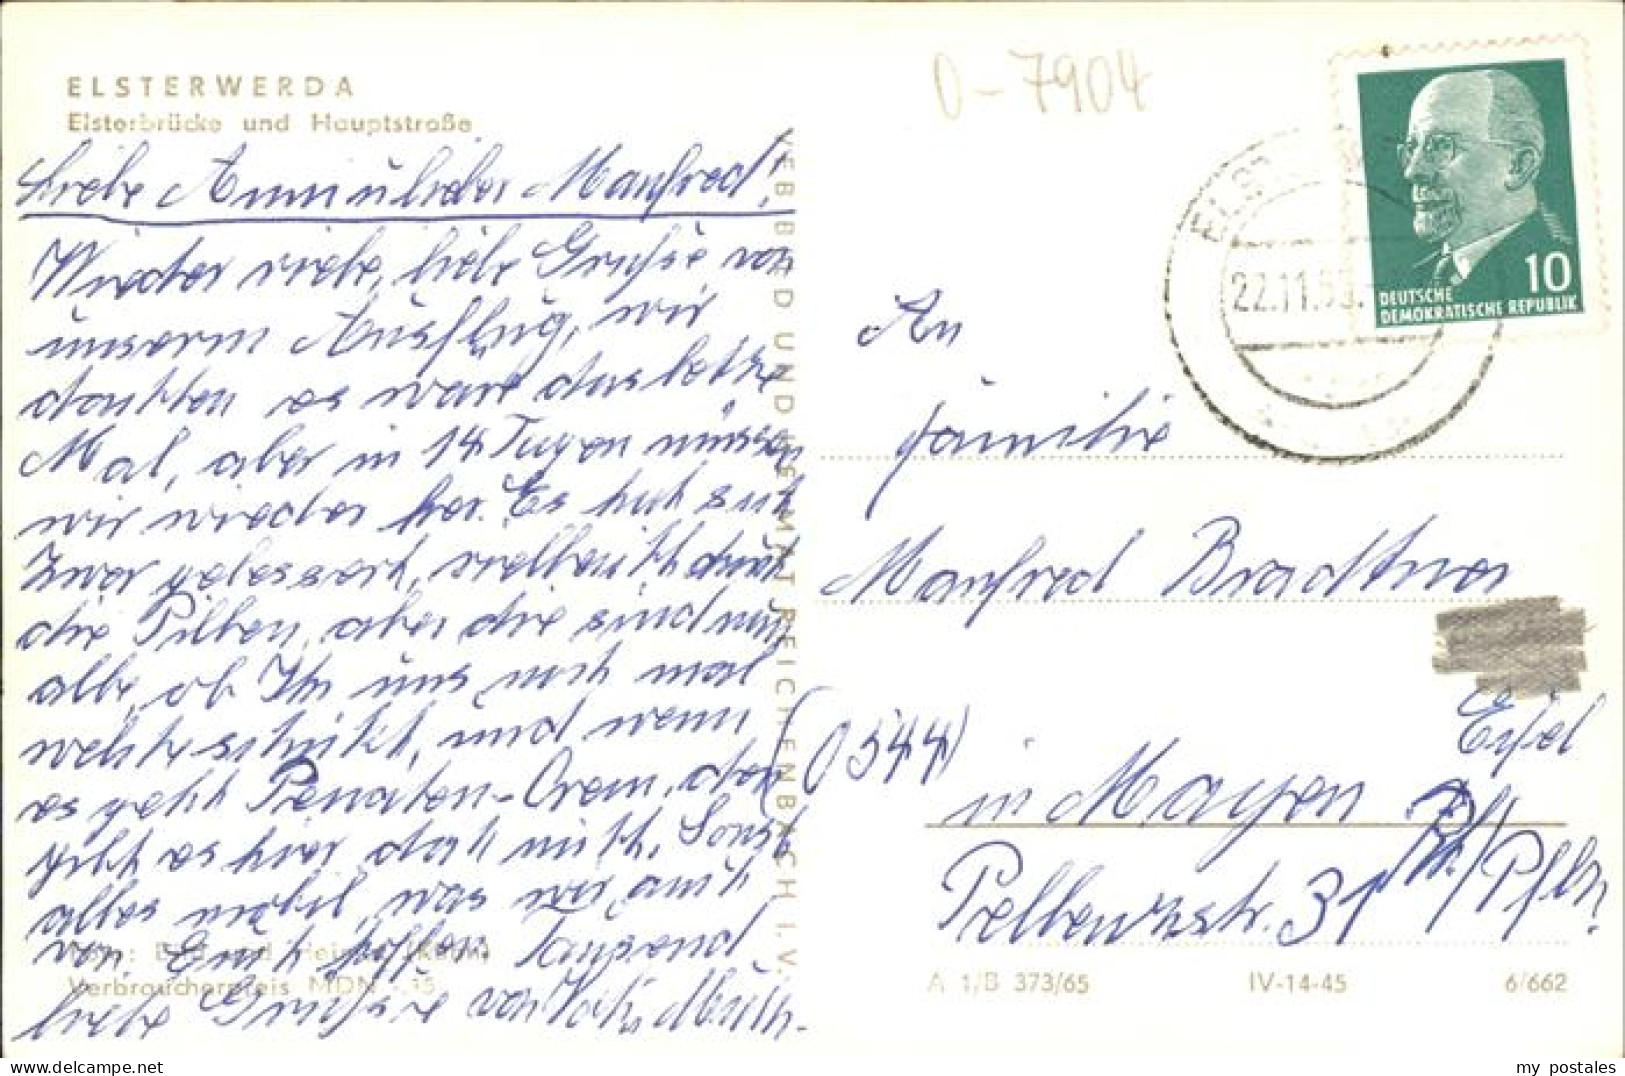 ELSTERWERDA
Elsterbrücke und Hauptstraße
Liebe Anni u lieber Manfred!
Wieder viele, liebe Grüsse von
unserm Ausflug, wir
dachten es wäre das letzte
Mal, aber in 14 Tagen müssen
wir wieder her. Es hat sich
zwar gebessert, vielleicht durch
die Pillen, aber die sind nun
alle, ob Ihr uns noch mal
welche schickt, und wenn
es geht Penaten-Crem, den
gibt es hier doch nicht, Sonst
alles wohl, was wir auch
von Euch hoffen. Tausend
Verbraucherpreis MDN
VEB BILD UND HEIMAT REICHENBACH I. V.
D-7904
ELST
22.11.
10
DEUTSCHE
DEMOKRATISCHE REPUBLIK
An
Familie
Manfred Bradtner
(0544)
in Mayen
Eifel
Pellenzstr. 31
/Pflz.
A 1/B 373/65 IV-14-45 6/662
delcampe.net
my_postales